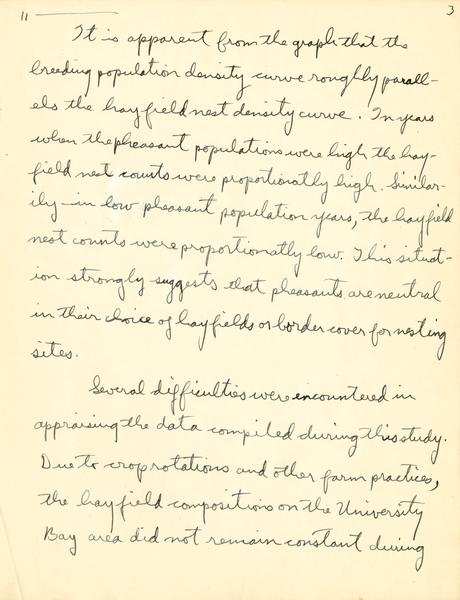 11
3
It is apparent from the graph that the
breeding population density curve roughly parall-
els the hayfield nest density curve. In years
when the pheasant populations were high the hay-
field nest counts were proportionatly high. Similar-
ily - in low pheasant population years, the hayfield
nest counts were proportionatly low. This situat-
ion strongly suggests that pheasants are neutral
in their choice of hayfields or border cover for nesting
sites.
Several difficulties were encountered in
appraising the data compiled during this study.
Due to crop rotations and other farm practices,
the hayfield compositions on the University
Bay area did not remain constant during